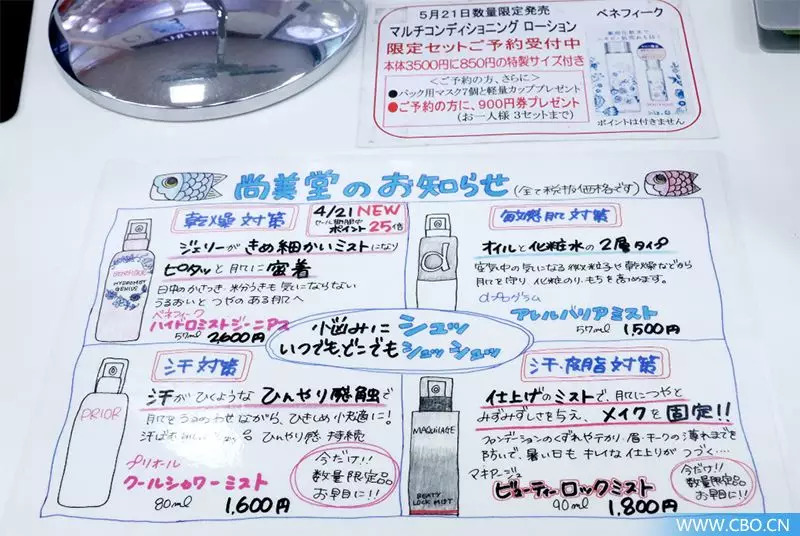 5月21日数量限定発売
マルチコンディショニング ローション
限定セットご予約受付中
本体3500円に850円の特製サイズ付き
<ご予約の方、さらに>
●パック用マスク7個と軽量カッププレゼント
●ご予約の方に、900円券プレゼント
(お一人様 3セットまで)
ベネフィーク
ポイントは付きません
尚美堂のお知らせ(全て税抜価格です)
乾燥対策
4/21 NEW
ポイント25倍
ジェリーがきめ細かいミストになり
ピタッと肌に密着
日中のかさつき、粉ふきも気にならない
うるおいとつやのある肌へ
ベネフィーク
ハイドロミストジーニアス
57ml 2600円
敏感肌対策
d
オイルと化粧水の2層タイプ
空気中の気になる微粒子や乾燥などから
肌を守り 化粧のり、もちを高めます。
dプログラム
アレルバリアミスト
57ml 1,500円
小凶みに シュッ
いつでもどこでも シュッシュッ
汗対策
PRIOR
汗がひくような ひんやり感触で
ひきしめ小丸適に!
ひんやり感 持続
プリオール
クールシャワーミスト
80ml 1,600円
今だけ!!
数量限定品
お早目に!!
汗・皮脂対策
MAQUILAGE
BEATY
LOCK MIST
仕上げのミストで、肌につやと
みずみずしさを与え、メイクを固定!!
ファンデーションのくずれやテカリ、眉・チークの薄れまでを
防いで、暑い日も キレイな仕上がりが つづく…
マキアージュ
ビューティーロックミスト
90ml 1,800円
今だけ!!
数量限定品
お早目に!!
WWW.CBO.CN